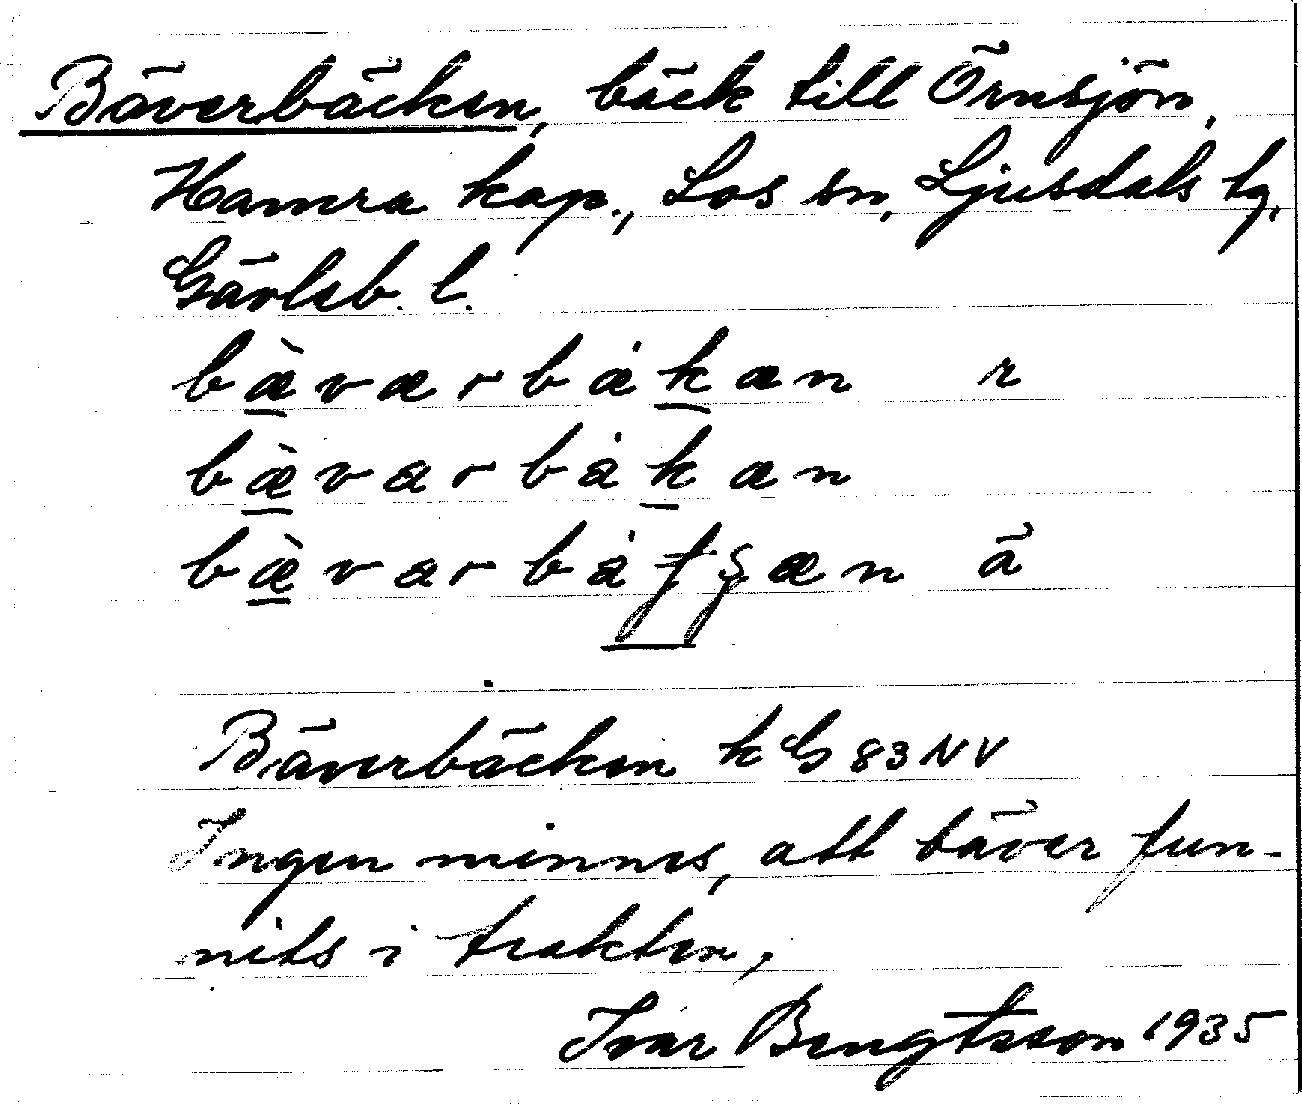 Bäverbäcken, bäck till Örnsjön,
Hamra kap., Los sn, Ljusdals tg,
Gävleb. l.
bæ̀værbȧkæn r
bæ̀varbȧkæn
bæ̀varbȧtʂæn ä
Bäverbäcken k G 83 NV
Ingen minnes, att bäver fun-
nits i trakten,
Ivar Bengtsson 1935